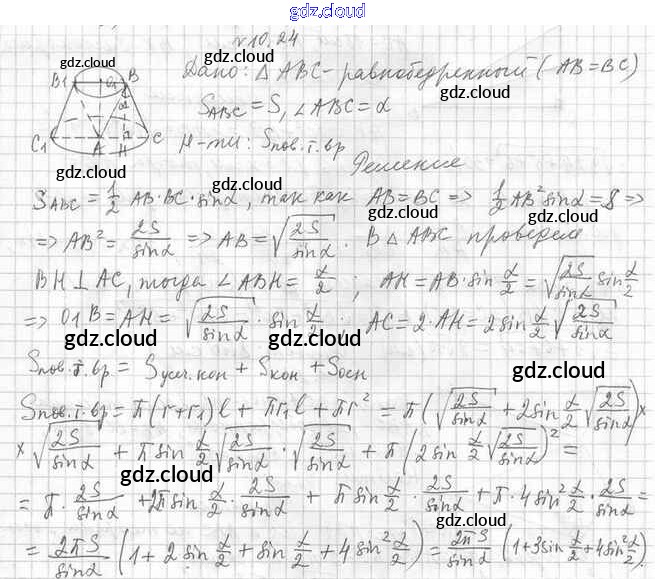 gdz.cloud
№10.24
gdz.cloud
Дано: △ABC - равнобедренный (AB=BC)
gdz.cloud
B1 O1 B
α
S_ABC = S, ∠ABC = α
gdz.cloud
C1 A H C
Н-ти: Sпов.т.вр
gdz.cloud
Решение
gdz.cloud
S_ABC = 1/2 AB·BC·sinα, так как AB=BC => 1/2 AB² sinα = S =>
gdz.cloud
=> AB² = 2S/sinα => AB = √(2S/sinα). В △ABC проведем
BH⊥AC, тогда ∠ABH = α/2; AH = AB·sin α/2 = √(2S/sinα) sin α/2
=> O1B = AH = √(2S/sinα) · sin α/2; AC = 2·AH = 2sin α/2 √(2S/sinα)
gdz.cloud gdz.cloud
Sпов.т.вр = Sусеч.кон + Sкон + Sосн
gdz.cloud
Sпов.т.вр = π(r+r₁)l + πr₁l + πr² = π(√(2S/sinα) + 2sin α/2 √(2S/sinα))×
× √(2S/sinα) + π sin α/2 √(2S/sinα) · √(2S/sinα) + π(2sin α/2 √(2S/sinα))² =
gdz.cloud
= π· 2S/sinα + 2π sin α/2 · 2S/sinα + π sin α/2 · 2S/sinα + π·4sin² α/2 · 2S/sinα =
gdz.cloud
= 2πS/sinα (1 + 2sin α/2 + sin α/2 + 4sin² α/2) = 2πS/sinα (1+3sin α/2 + 4sin² α/2).
gdz.cloud gdz.cloud